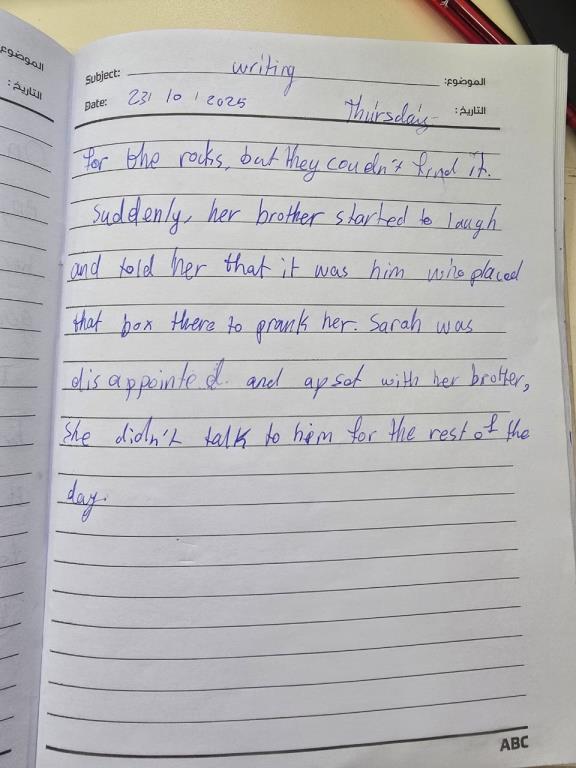 الموضوع
التاريخ :
Subject: writing الموضوع:
Date: 23 / 10 / 2025 Thursday التاريخ :
for the rocks, but they coudn't find it.
Suddenly, her brother started to laugh
and told her that it was him who placed
that box there to prank her. Sarah was
disappointed. and apset with her brother,
She didn't talk to him for the rest of the
day.
ABC